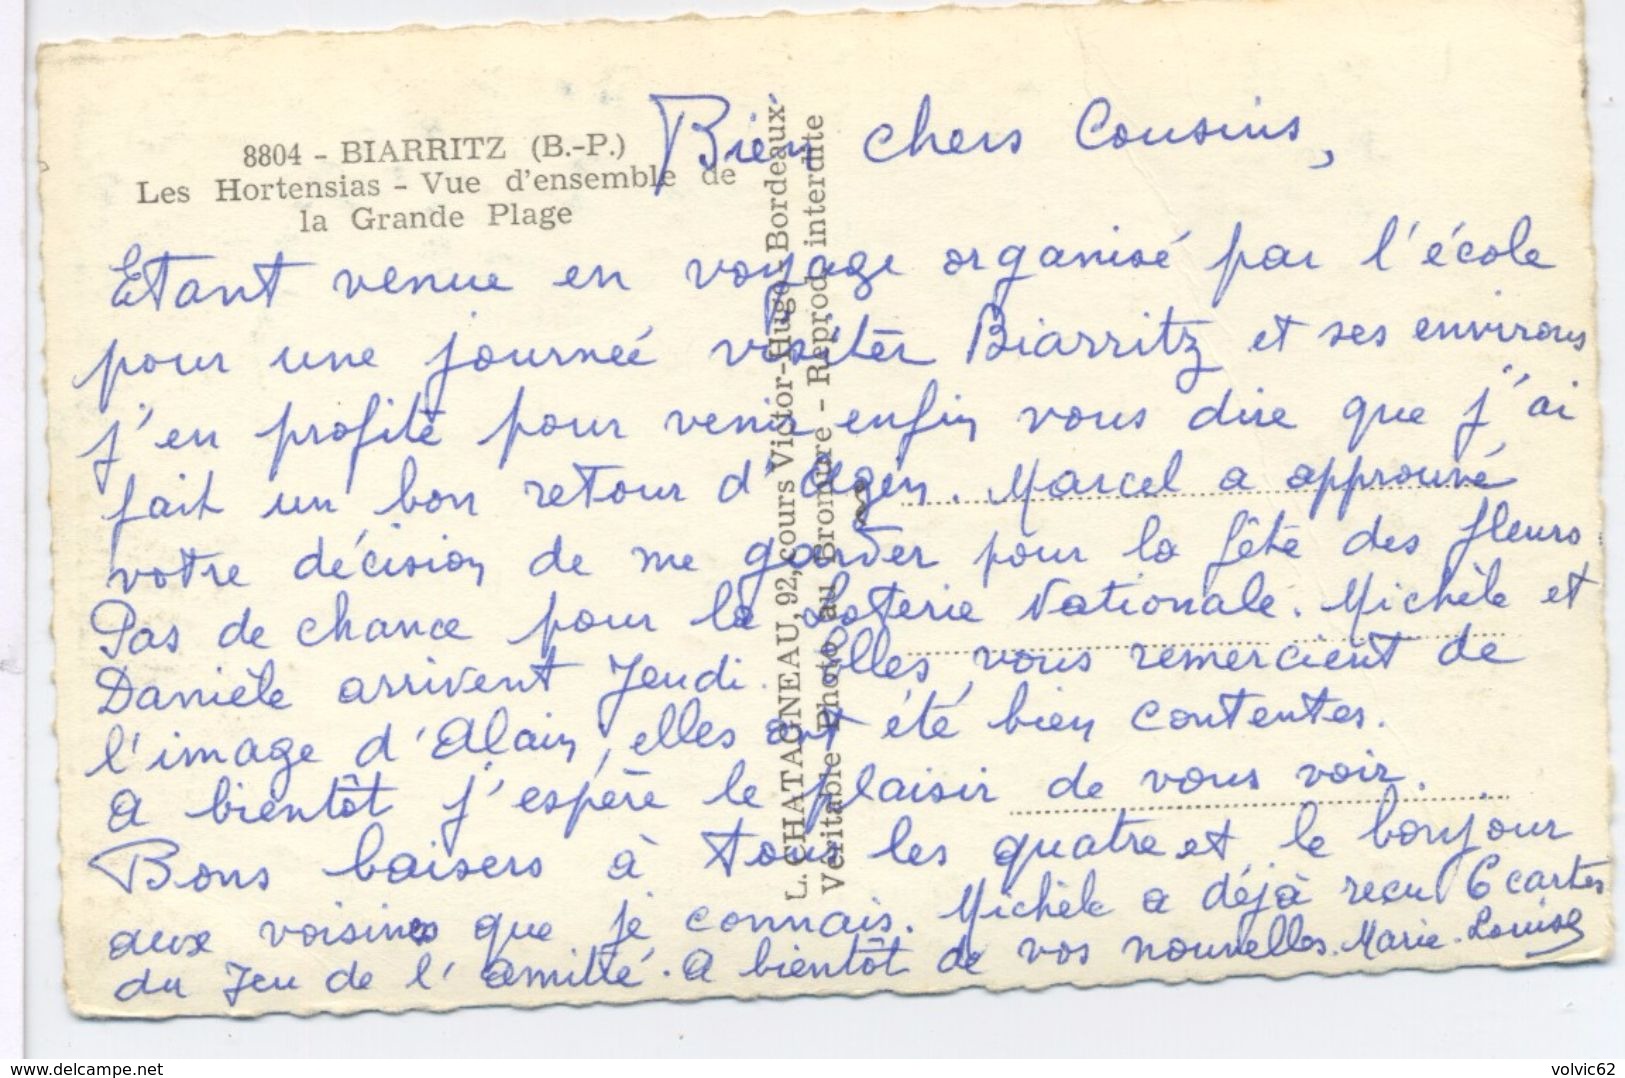 8804 - BIARRITZ (B.-P.)
Les Hortensias - Vue d'ensemble de
la Grande Plage
L. CHATAGNEAU, 92, cours Victor-Hugo - Bordeaux
Véritable Photo au Bromure - Reprod. interdite
Bien chers Cousins,
Etant venue en voyage organisé par l'école
pour une journeé visiter Biarritz et ses environs
j'en profite pour venir enfin vous dire que j'ai
fait un bon retour d'Agen. Marcel a approuvé
votre décision de me garder pour la fête des fleurs.
Pas de chance pour la Loterie Nationale. Michèle et
Danièle arrivent Jeudi. Elles vous remercient de
l'image d'Alain, elles ont été bien contentes.
A bientôt j'espère le plaisir de vous voir.
Bons baisers à tous les quatre et le bonjour
aux voisines que je connais. Michèle a déjà recu 6 cartes
du Jeu de l'amitié. A bientôt de vos nouvelles. Marie-Louise
delcampe.net
volvic62